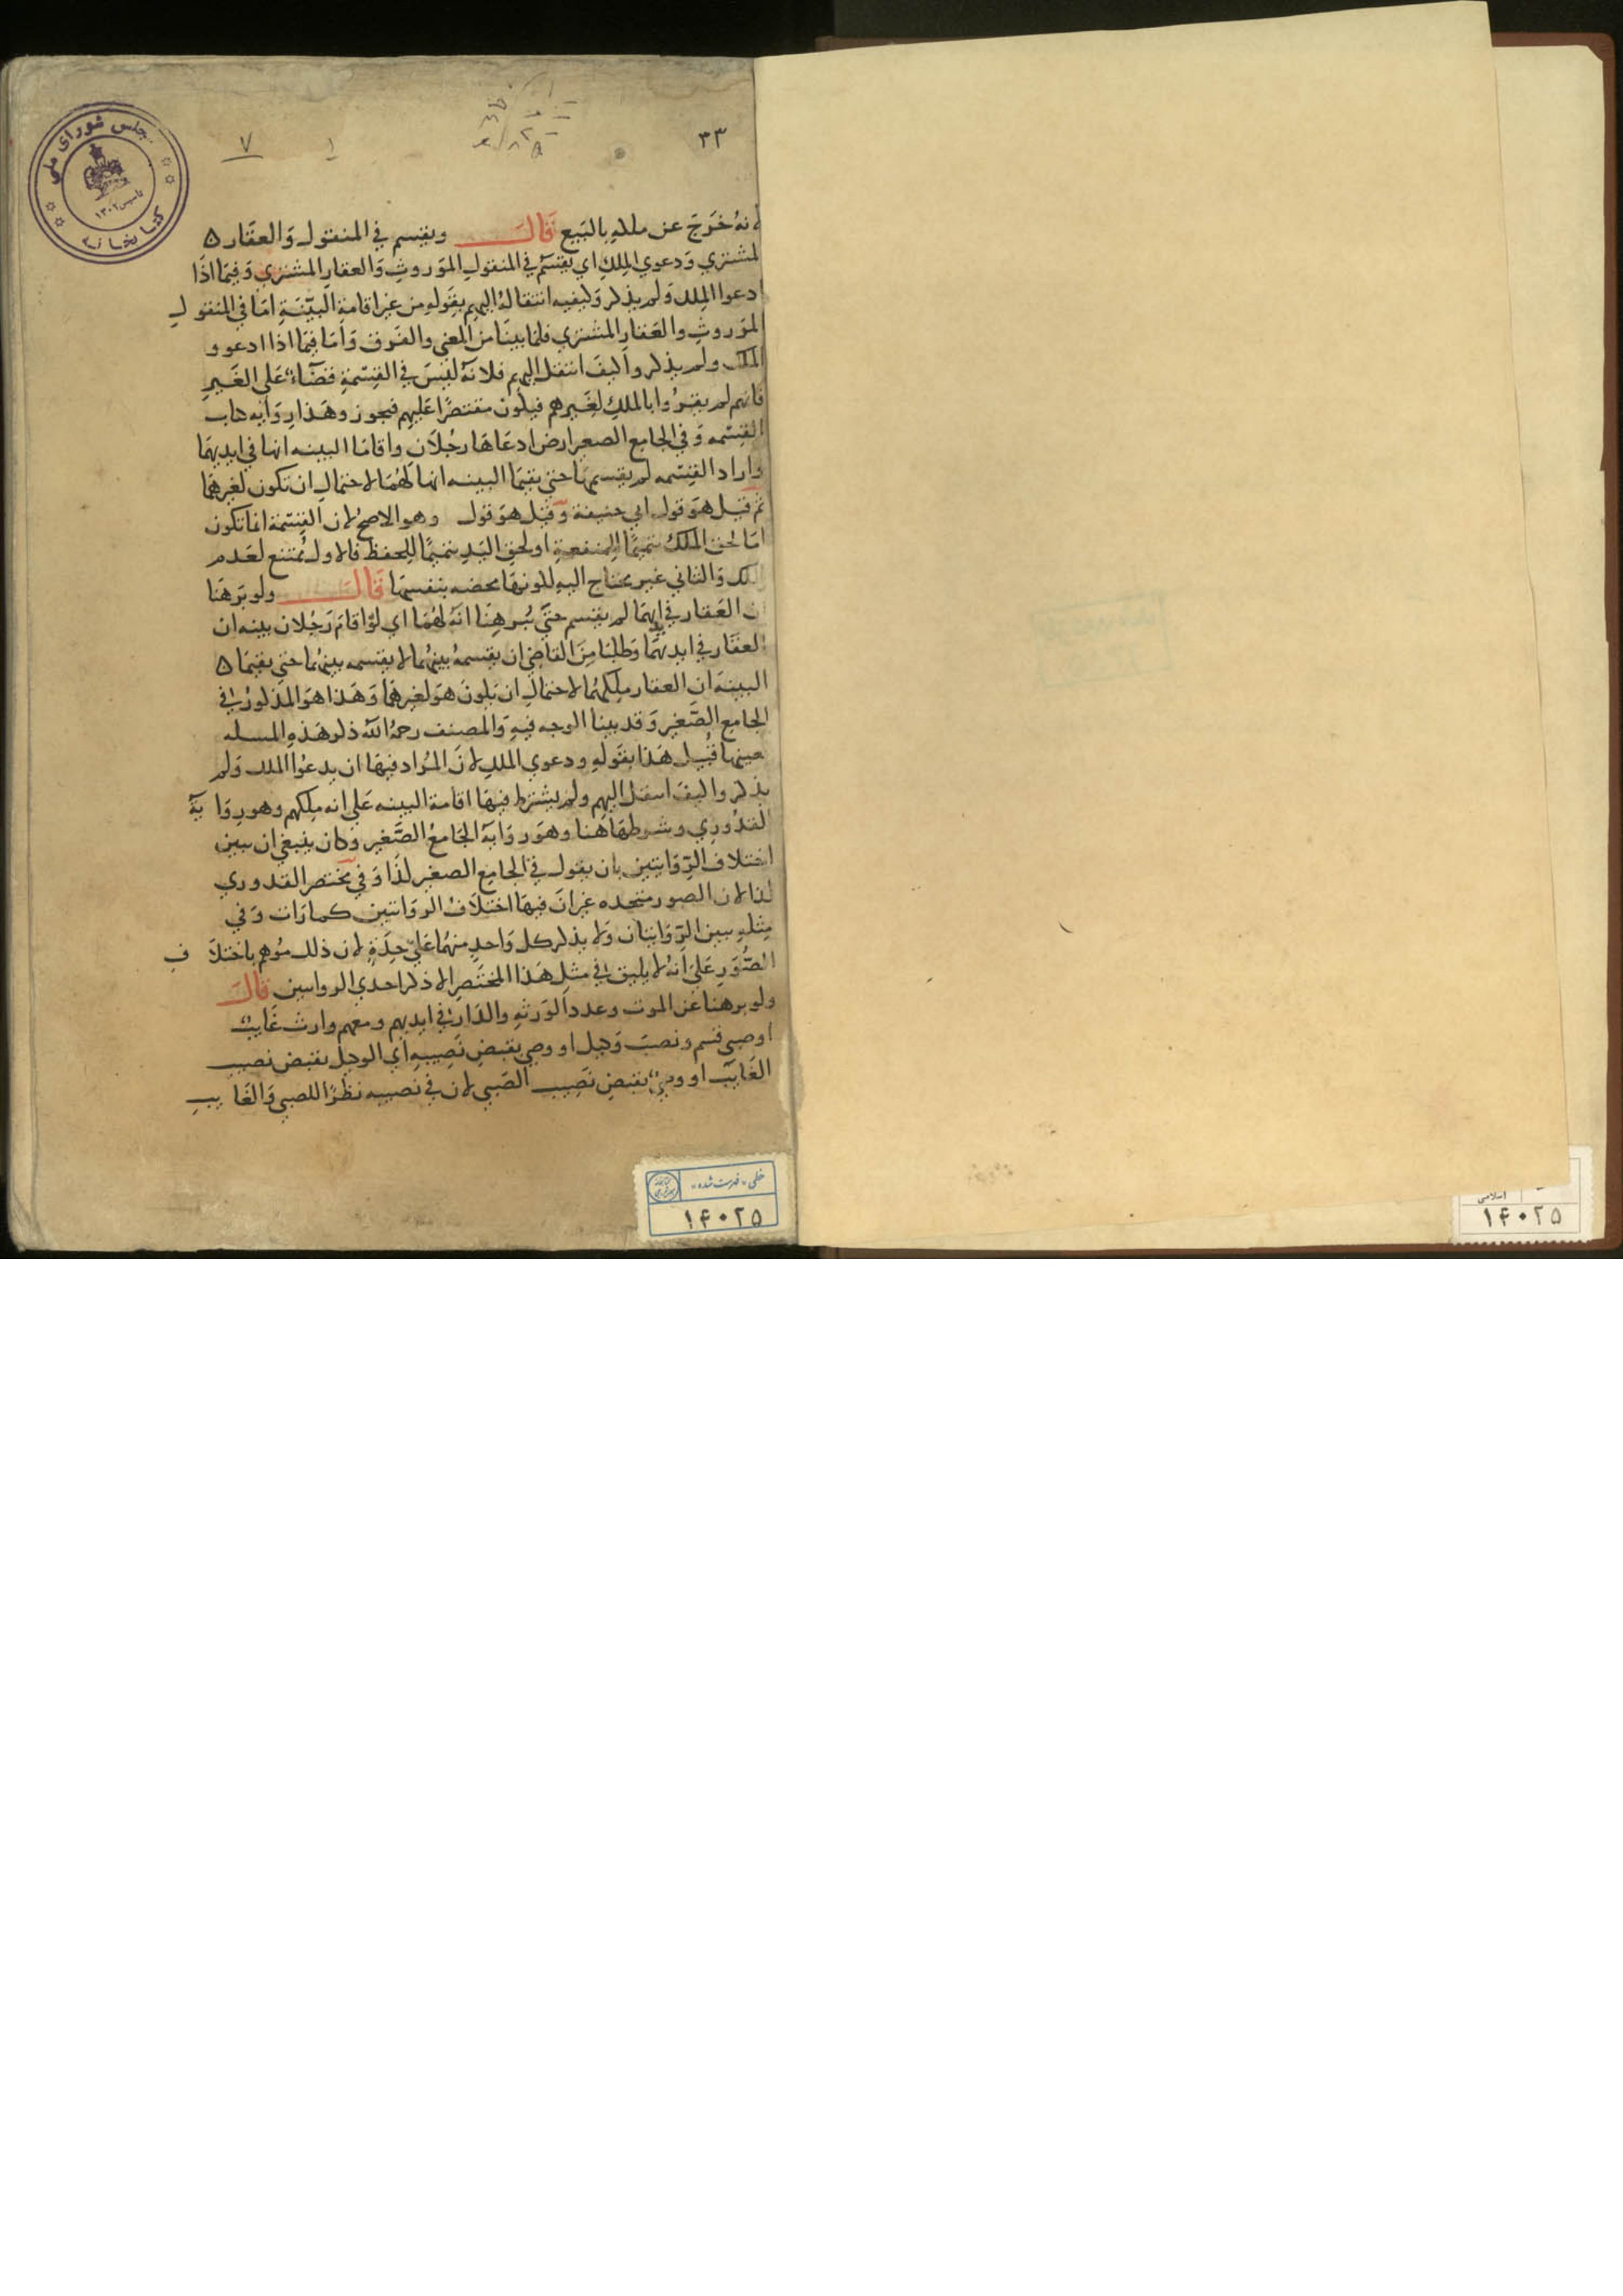 ٣٣
٧
مجلس شورای ملی
کتابخانه
تاسیس ١٣٠٢
لانهُ خَرَجَ عن ملكهِ بالبَيع قَالَ ويقسم في المنقول وَالعقَار ه
المشتري وَدعوي المِلكِ اي يقسَم في المنقولِ المَوروثِ وَالعقارِ المشتري وَفيمَا اذَا
ادعوا المِلك وَلم يذكر وكيفيه انتقالهُ اليهِم بقَولهِم من غير اقامة البيّنَةِ امَا في المنقولِ
المَوروثِ والعَقارِ المشتري فلما بينَا من المعني والفَرق وَامَا فيمَا اذا ادعوو
الملك ولم يذكروا كيفَ انتقل اليهِم فلانهُ ليسَ في القِسْمَةِ قضَآءٌ عَلى الغَيرِ
فانهم لم يقِرُوا بالملكِ لِغَيرهم فيكون مقتصرًا عَليهِم فيجوز وهَذا رِوَايه كتاب
القِسْمه وَفي الجامع الصغير ارض ادعَاهَا رجُلَان واقامَا البينه انها في ايديهمَا
وارادا القِسْمه لم يقسمهَا حتي يقيمَا البينه انها لهُمَا لاحتمالِ ان تكون لغيرهمَا
ثم قيل هوَ قول ابي حنيفة وَقيل هوَ قول وهو الاصح لان القِسْمَة انما تكون
امَا لحق الملك تتميمًا للمنفعةِ او لحق اليَدِ تتميمًا لِلحفظ فالاول مُمتنع لعَدم
الملك وَالثاني غير محتاج اليهِ لكونهَا محصنه بنفسهَا قَالَ ولو برهَنَا
ان العَقار في ايديهمَا لم يقسم حتّي يُبرهِنَا انّهُ لهُمَا اي لوْ اقامَ رَجُلان بينه ان
العقَار في ايديهمَا وَطلبَا مِنَ القاضِي ان يقسمهُ بينهُما لا يقسمه بينهُما حتي يقيمَا ه
البينَةَ ان العقار مِلكهُما لاحتمالِ ان يكونَ هوَ لغيرهمَا وَهَذا هوَ المذكورُ في
الجامع الصّغير وَقد بينا الوجه فيهِ وَالمصنف رحمهُ اللهُ ذكر هَذهِ المسله
بعينها قُبَيل هَذا بقَولهِ ودعوي الملكِ لانَ المُراد فيهَا ان يدعُوا الملك وَلم
يذكروا كيفَ انتقل اليهِم ولم يشترط فيهَا اقامة البينه عَلى انه مِلكهم وهو رِوَايَة
القدُوري وشرطهَا هنا وهوَ روَايةُ الجَامعُ الصَّغير وكان ينبغي ان يبين
اختلاف الرِّوَايتين بان يقول في الجامع الصغير كذَا وَفي مختصر القدوري
كذا لان الصور متحده غير انَ فيهَا اختلَافُ الروَايتين كما رَات وَفي
مِثلهِ يبين الرّوَايتان وَلا يذكر كل وَاحدٍ منهُما عَليّ حِدَةٍ لان ذلك مُوهِم باختلَافِ
الصُّوَرِ عَلى انهُ لا يليق في مثلِ هَذا المختَصِر الا ذكر احدي الروايتين قَالَ
ولو برهنا عن الموت وعدد الوَرثةِ والدَار في ايديهم ومعهم وارث غايبٌ
او صبي قسم ونصبَ وَكيل او وصي يقبضِ نَصِيبهِ اي الوكيل يقبض نصيب
الغَايب او وصيٌ يقبضِ نَصِيب الصَبي لان في نصيبه نظرًا للصبي وَالغَايبِ
خطی - فهرست شده
١۴٠٢۵
اسلامی
١۴٠٢۵